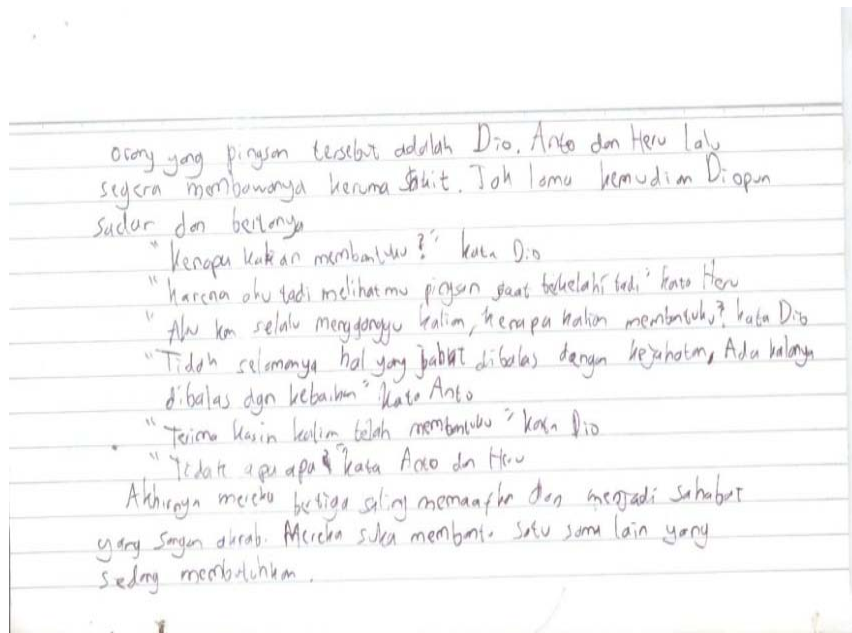 orang yang pingsan tersebut adalah Dio. Anto dan Heru lalu
segera membawanya kerumah sakit. Tak lama kemudian Diopun
sadar dan bertanya
"Kenapa kalian membantuku?" kata Dio
"karena aku tadi melihatmu pingsan saat berkelahi tadi" kata Heru
"Aku kan selalu mengganggu kalian, kenapa kalian membantuku? kata Dio
"Tidak selamanya hal yang dibalas dengan kejahatan, Ada kalanya
dibalas dgn kebaikan" kata Anto
"Terima kasih kalian telah membantuku" kata Dio
"Tidak apa apa" kata Anto dan Heru
Akhirnya mereka bertiga saling memaafkan dan menjadi sahabat
yang sangat akrab. Mereka suka membantu satu sama lain yang
sedang membutuhkan.